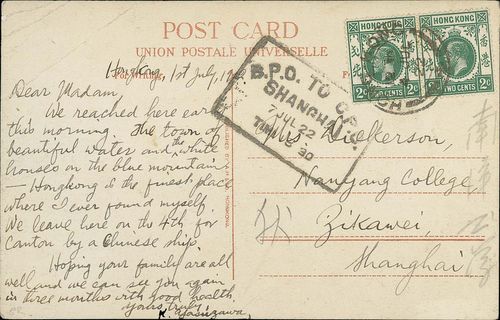 POST CARD
UNION POSTALE UNIVERSELLE
Hongkong, 1st July,
Dear Madam,
We reached here early
this morning. The town of
beautiful water and the white
houses on the blue mountain
— Hongkong is the finest place
where I ever found myself.
We leave here on the 4th for
Canton by a Chinese ship.
Hoping your family are all
well and we can see you again
in three months with good health,
yours truly,
K. Yasuzawa.
B.P.O. TO C.P.O.
SHANGHAI
7 JUL 22
HONG KONG
2C
TWO CENTS
2C
HONG KONG
2C
TWO CENTS
2C
Mrs. Nickerson,
Nanyang College,
Zikawei,
Shanghai